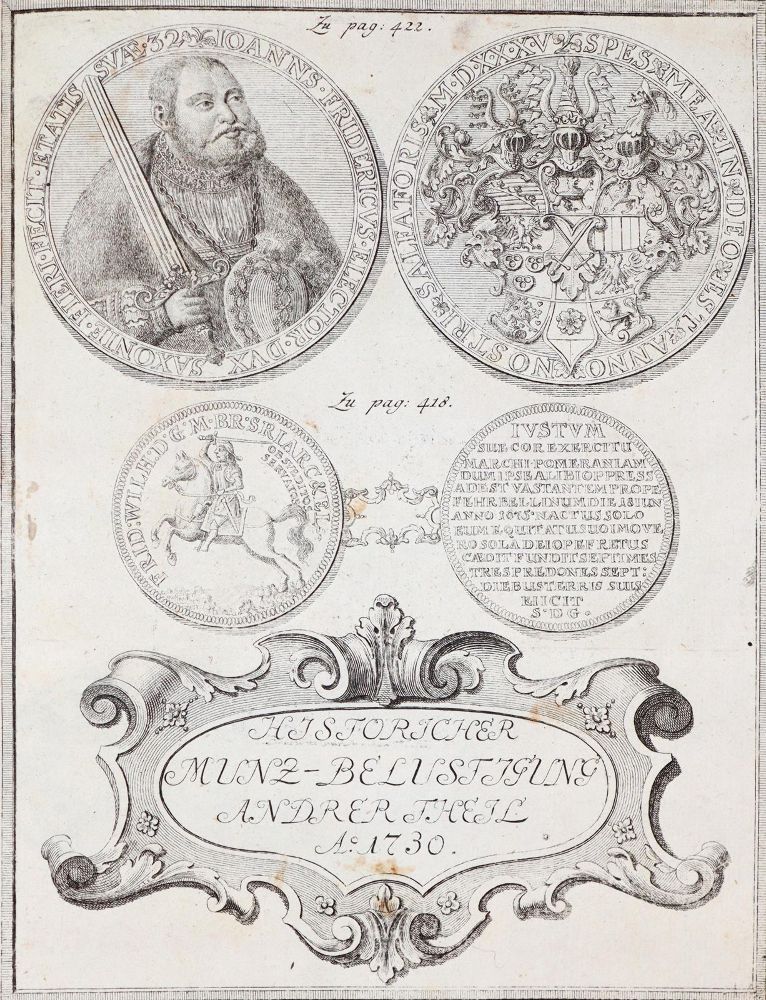 Zu pag: 422.
IOANNS · FRIDERICVS · ELECTOR · DVX SAXONIE · FIERI · FECIT · ETATIS SVÆ : 32
SPES MEA IN DEO EST ANNO NOSTRI SALFATORIS M · D · XX · X · V
Zu pag: 418.
FRID: WILH · D · G · M · BR · S · R · I · ARC
IVSTVM
SUE COR EXERCITU
MARCHI · POMERANIAM
DUM IPSE ALIBI OPPRESS
ADEST VASTANTEM PROPE
FEHRBELLINUM DIE 18 IUN
ANNO 1675 · NACTUS SOLO
EUM EQUITATU SUO IMOVE
RO SOLA DEI OPE FRETUS
CÆDIT FUNDIT SEPTIMES
TRES PREDONES SEPT:
DIEBUS TERRIS SUIS
EIICIT
S · D G ·
HISTORICHER
MUNZ-BELUSTIGUNG
ANDRER THEIL
Aͦ: 1730.